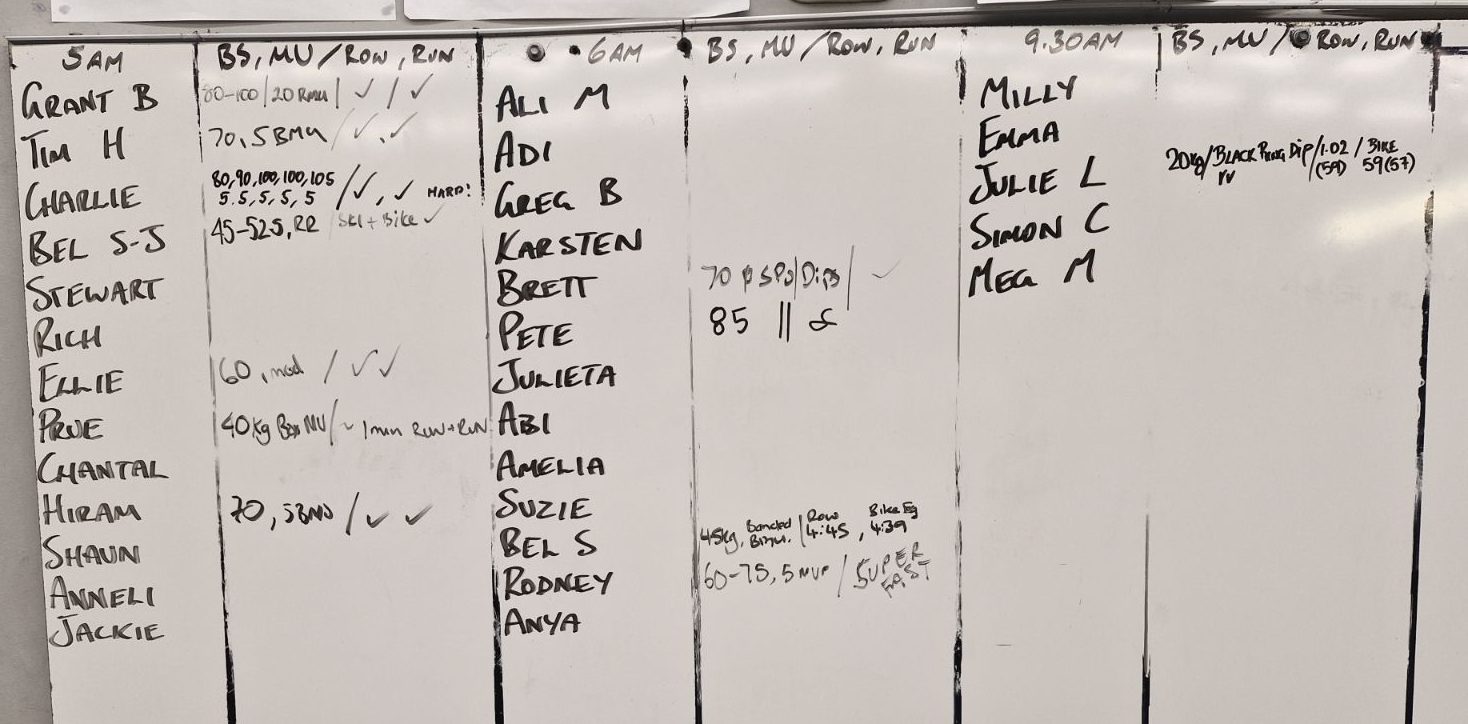 5AM
BS, MU / ROW, RUN
GRANT B
80-100 / 20 RMU / ✓ / ✓
TIM H
70, 5 BMU / ✓, ✓
CHARLIE
80, 90, 100, 100, 105
5, 5, 5, 5, 5 / ✓, ✓ HARD!
BEL S-J
45-52.5, RR / Ski + Bike ✓
STEWART
RICH
ELLIE
60, mod / ✓ ✓
PRUE
40kg Box MU / ~ 1min ROW + RUN
CHANTAL
HIRAM
70, 5BMU / ✓ ✓
SHAUN
ANNELI
JACKIE
6AM
BS, MU / ROW, RUN
ALI M
ADI
GREG B
KARSTEN
BRETT
70 / Dips / ✓
PETE
85 ||
JULIETA
ABI
AMELIA
SUZIE
BEL S
45kg, Banded / Row 4:45, Bike 4:39
RODNEY
60-75, 5 MUP / SUPER FAST
ANYA
9.30AM
BS, MU / ROW, RUN
MILLY
EMMA
JULIE L
20kg / BLACK RING DIP / 1.02 (59) / BIKE 59 (57)
SIMON C
MEG M